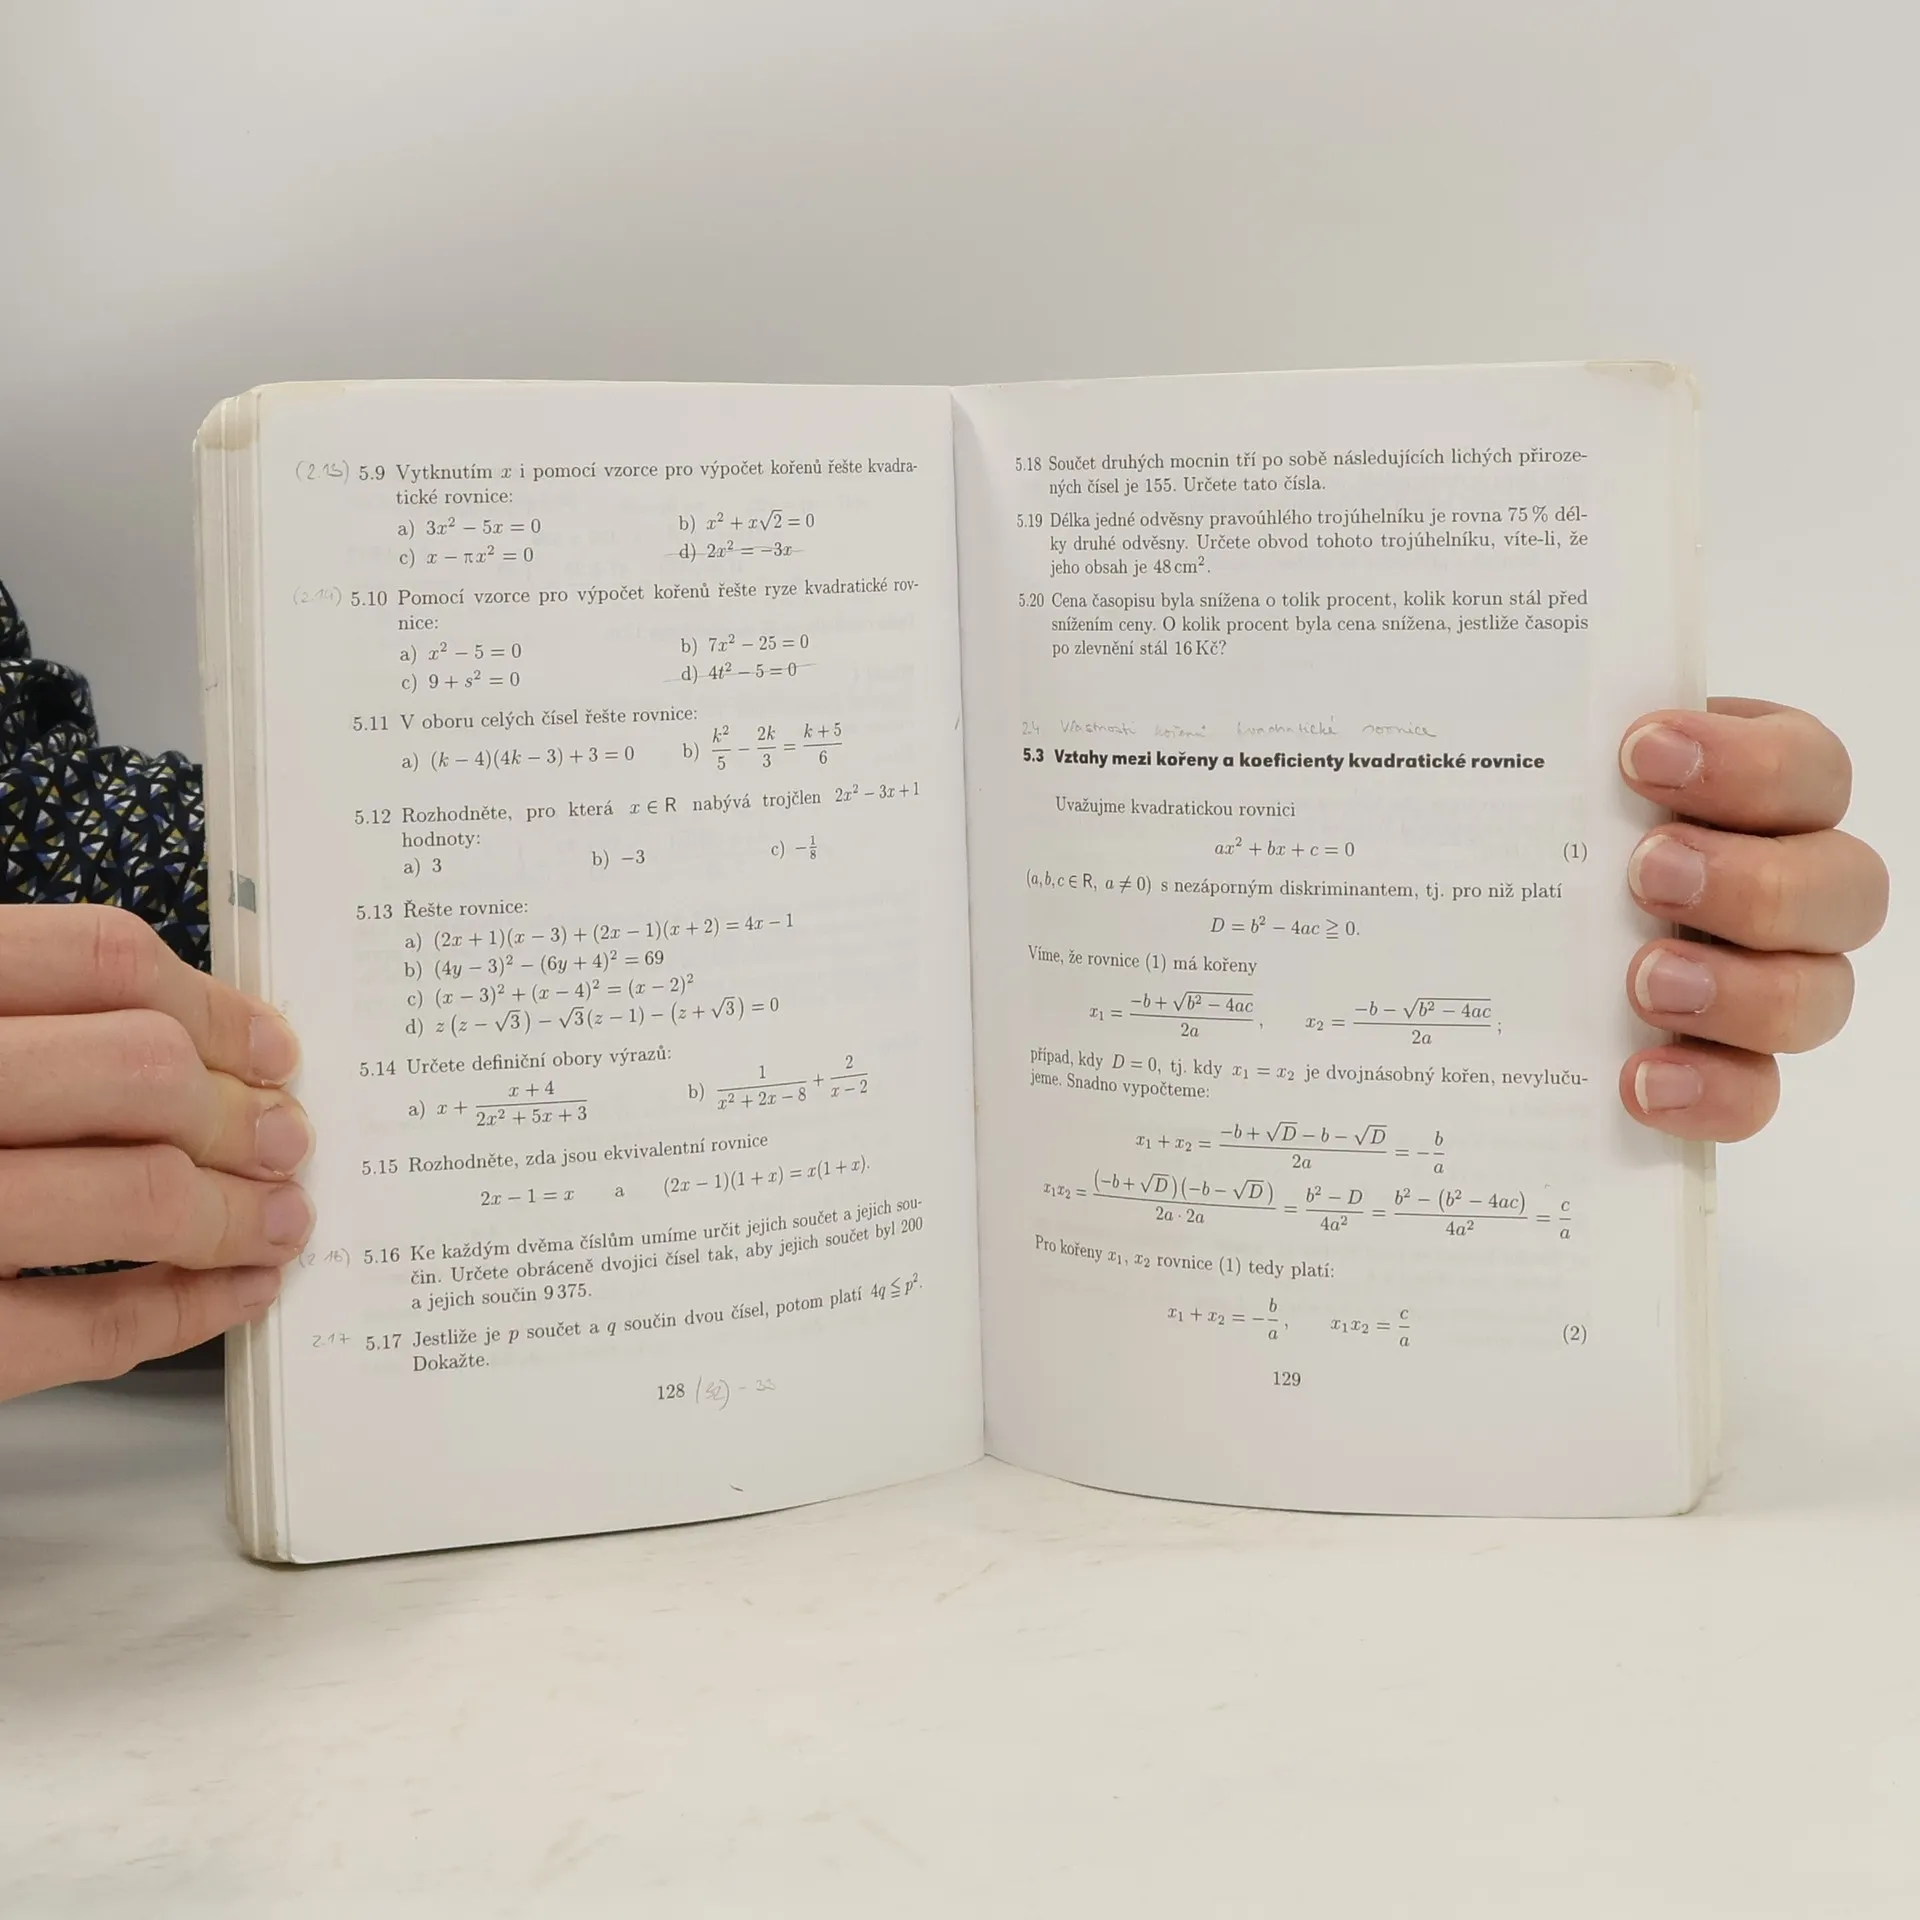 (2.13) 5.9 Vytknutím x i pomocí vzorce pro výpočet kořenů řešte kvadra-
tické rovnice:
a) 3x² − 5x = 0 b) x² + x√2 = 0
c) x − πx² = 0 d) 2x² = −3x
(2.14) 5.10 Pomocí vzorce pro výpočet kořenů řešte ryze kvadratické rov-
nice:
a) x² − 5 = 0 b) 7x² − 25 = 0
c) 9 + s² = 0 d) 4t² − 5 = 0
5.11 V oboru celých čísel řešte rovnice:
a) (k − 4)(4k − 3) + 3 = 0 b) k²/5 − 2k/3 = (k + 5)/6
5.12 Rozhodněte, pro která x ∈ R nabývá trojčlen 2x² − 3x + 1
hodnoty:
a) 3 b) −3 c) −1/8
5.13 Řešte rovnice:
a) (2x + 1)(x − 3) + (2x − 1)(x + 2) = 4x − 1
b) (4y − 3)² − (6y + 4)² = 69
c) (x − 3)² + (x − 4)² = (x − 2)²
d) z(z − √3) − √3(z − 1) − (z + √3) = 0
5.14 Určete definiční obory výrazů:
a) x + (x + 4)/(2x² + 5x + 3) b) 1/(x² + 2x − 8) + 2/(x − 2)
5.15 Rozhodněte, zda jsou ekvivalentní rovnice
2x − 1 = x a (2x − 1)(1 + x) = x(1 + x).
(2.16) 5.16 Ke každým dvěma číslům umíme určit jejich součet a jejich sou-
čin. Určete obráceně dvojici čísel tak, aby jejich součet byl 200
a jejich součin 9 375.
2.17 5.17 Jestliže je p součet a q součin dvou čísel, potom platí 4q ≦ p².
Dokažte.
128 (32) - 33
5.18 Součet druhých mocnin tří po sobě následujících lichých přiroze-
ných čísel je 155. Určete tato čísla.
5.19 Délka jedné odvěsny pravoúhlého trojúhelníku je rovna 75 % dél-
ky druhé odvěsny. Určete obvod tohoto trojúhelníku, víte-li, že
jeho obsah je 48 cm².
5.20 Cena časopisu byla snížena o tolik procent, kolik korun stál před
snížením ceny. O kolik procent byla cena snížena, jestliže časopis
po zlevnění stál 16 Kč?
2.4 Vlastnosti kořenů kvadratické rovnice
5.3 Vztahy mezi kořeny a koeficienty kvadratické rovnice
Uvažujme kvadratickou rovnici
ax² + bx + c = 0 (1)
(a, b, c ∈ R, a ≠ 0) s nezáporným diskriminantem, tj. pro niž platí
D = b² − 4ac ≧ 0.
Víme, že rovnice (1) má kořeny
x₁ = (−b + √(b² − 4ac))/2a, x₂ = (−b − √(b² − 4ac))/2a;
případ, kdy D = 0, tj. kdy x₁ = x₂ je dvojnásobný kořen, nevyluču-
jeme. Snadno vypočteme:
x₁ + x₂ = (−b + √D − b − √D)/2a = −b/a
x₁x₂ = (−b + √D)(−b − √D)/(2a · 2a) = (b² − D)/4a² = (b² − (b² − 4ac))/4a² = c/a
Pro kořeny x₁, x₂ rovnice (1) tedy platí:
x₁ + x₂ = −b/a, x₁x₂ = c/a (2)
129